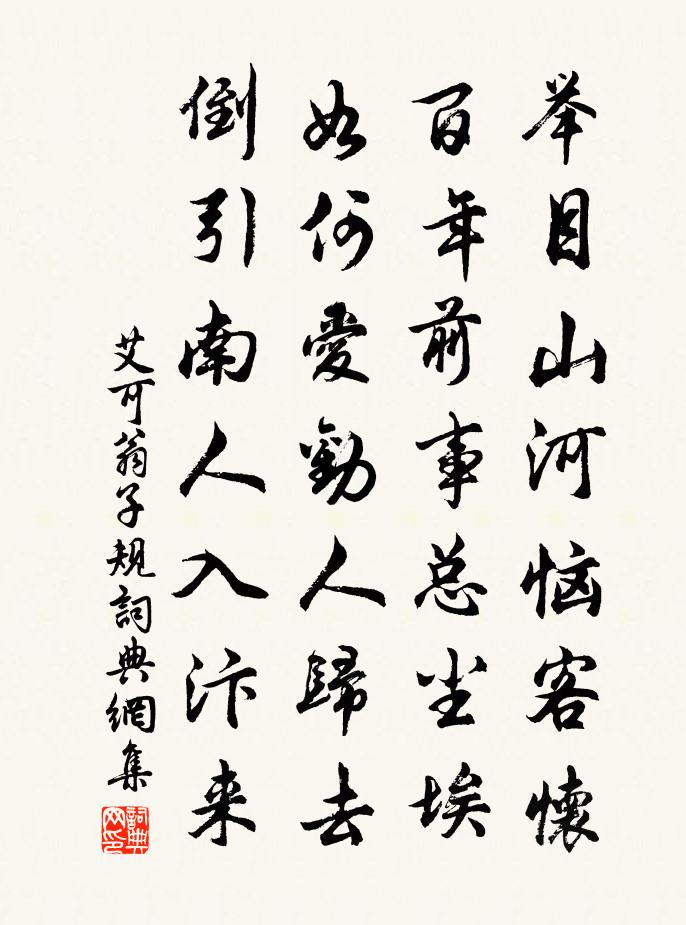 举目山河恼客懷
百年前事总尘埃
如何愛勸人歸去
倒引南人入汴来
艾可翁子规詞典網集
詞典网印